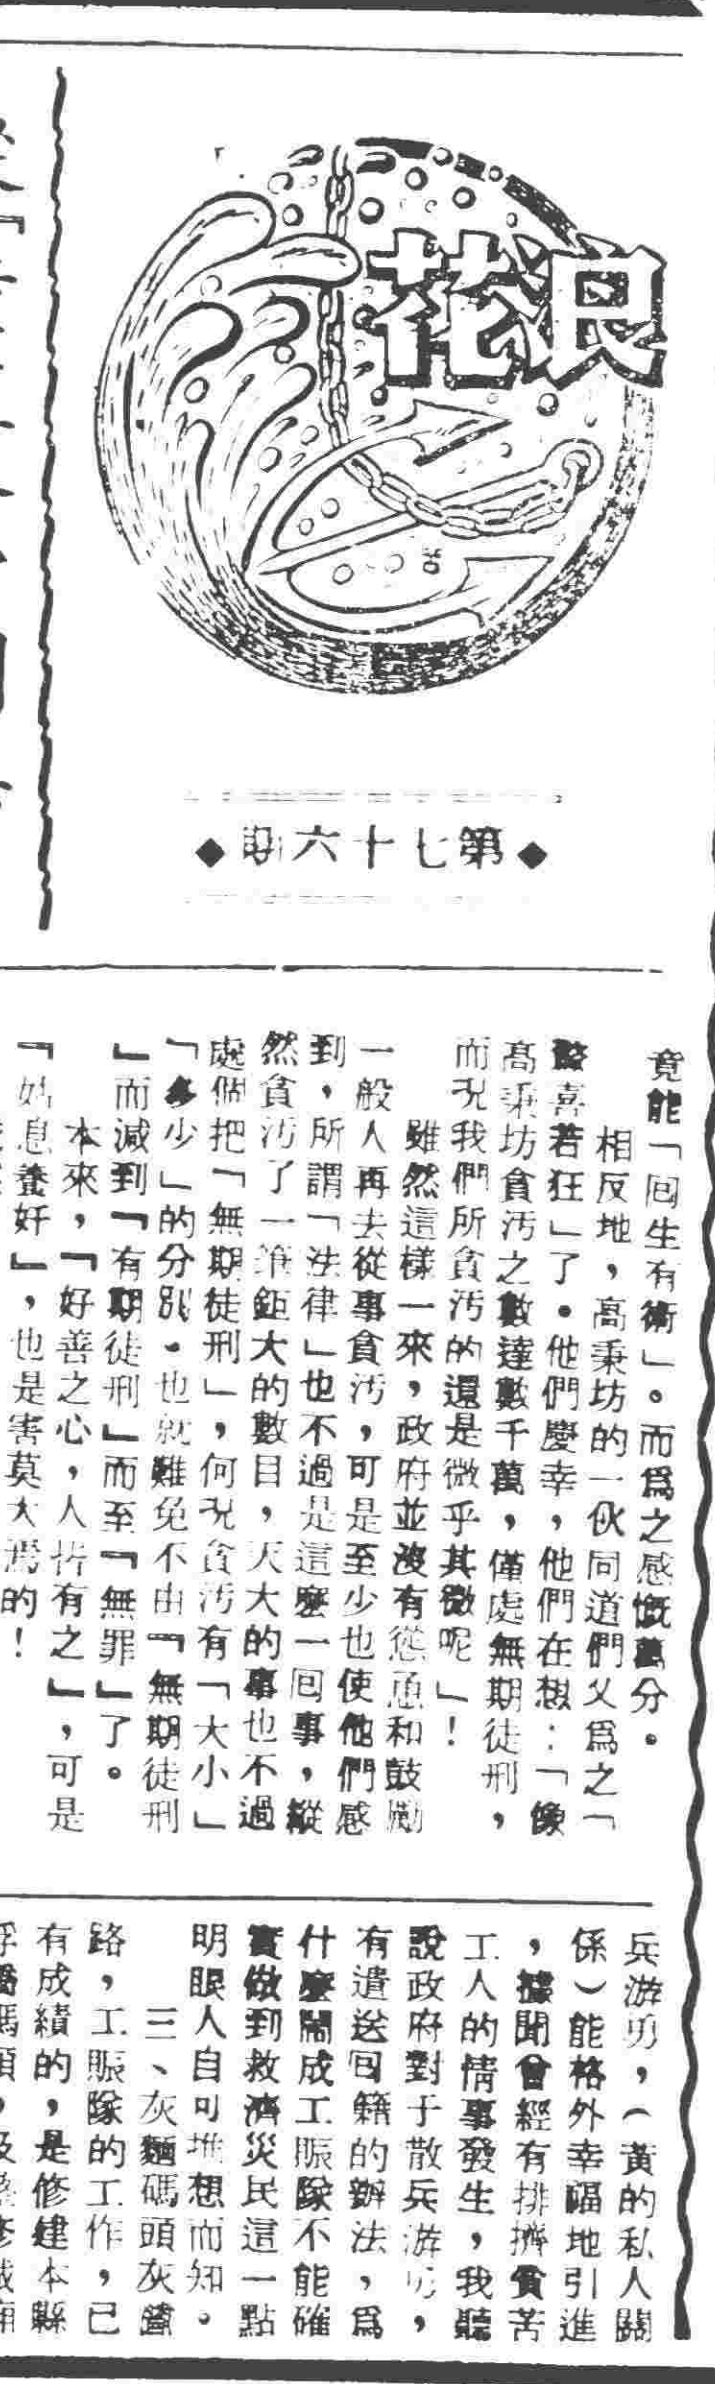 浪花
◆第七十六期◆
竟能「回生有術」。而爲之感慨萬分。
相反地，高秉坊的一伙同道們又爲之「
驚喜若狂」了。他們慶幸，他們在想：「像
高秉坊貪汚之數達數千萬，僅處無期徒刑，
而況我們所貪汚的還是微乎其微呢」！
雖然這樣一來，政府並沒有慫恿和鼓勵
一般人再去從事貪汚，可是至少也使他們感
到，所謂「法律」也不過是這麼一回事，縱
然貪汚了一筆鉅大的數目，天大的事也不過
處個把「無期徒刑」，何況貪汚有「大小」
「多少」的分別。也就難免不由『無期徒刑
』而減到『有期徒刑』而至『無罪』了。
本來，『好善之心，人皆有之』，可是
『姑息養奸』，也是害莫大焉的！
兵游勇，（黃的私人關
係）能格外幸福地引進
，據聞會經有排擠貧苦
工人的情事發生，我聽
說政府對于散兵游勇，
有遣送回籍的辦法，爲
什麼鬧成工賑隊不能確
實做到救濟災民這一點
明眼人自可推想而知。
三、灰麵碼頭灰
路，工賑隊的工作，已
有成績的，是修建本縣